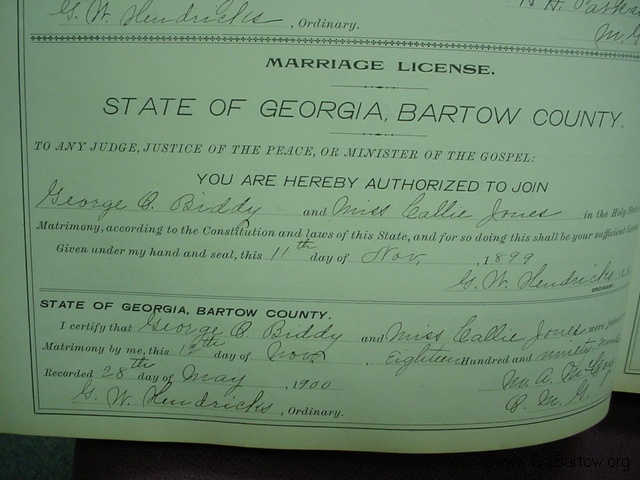 G. W. Hendricks , Ordinary.
M. G.
MARRIAGE LICENSE.
STATE OF GEORGIA, BARTOW COUNTY.
TO ANY JUDGE, JUSTICE OF THE PEACE, OR MINISTER OF THE GOSPEL:
YOU ARE HEREBY AUTHORIZED TO JOIN
George B. Biddy and Miss Callie Jones in the Holy
Matrimony, according to the Constitution and laws of this State, and for so doing this shall be your sufficient
Given under my hand and seal, this 11th day of Nov. , 1899
G. W. Hendricks
ORDINARY
STATE OF GEORGIA, BARTOW COUNTY.
I certify that George B. Biddy and Miss Callie Jones were
Matrimony by me, this 12th day of Nov , Eighteen Hundred and ninety
Recorded 28th day of May , 1900
M. A.
G. W. Hendricks , Ordinary.
www.GaBartow.org